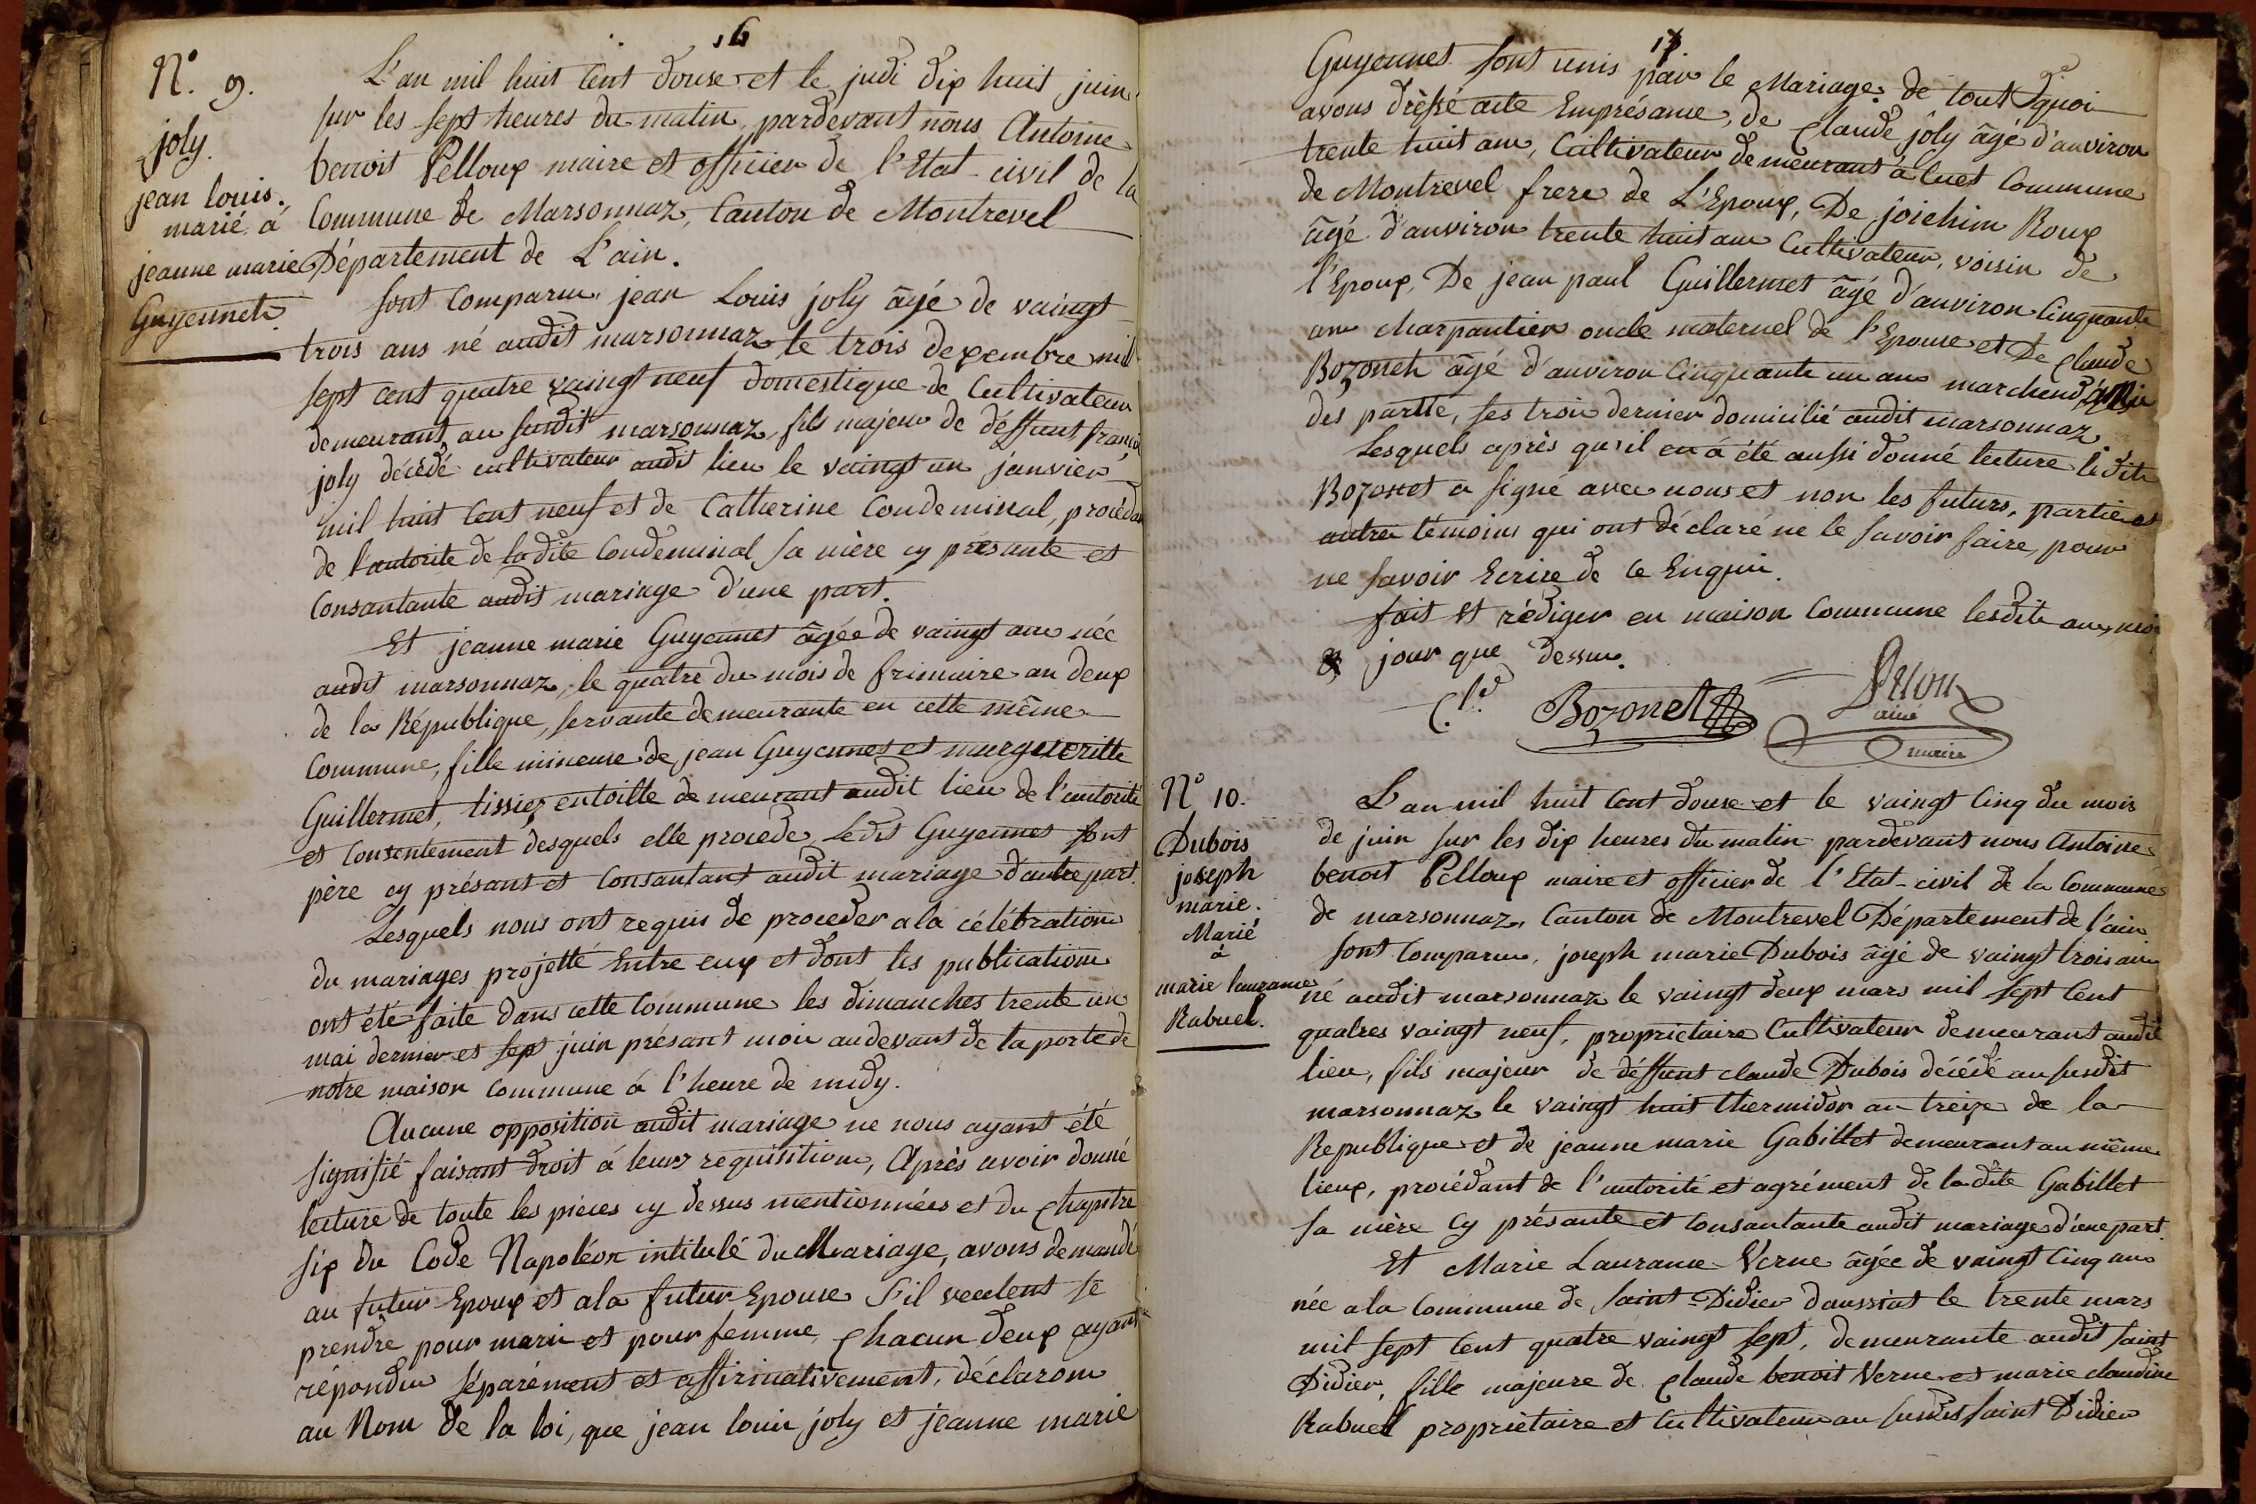 16
N.° 9.
joly.
jean louis.
marié à
jeanne marie
Guyennet.
L'an mil huit Cent douse et le judi dix huit juin
sur les sept heures du matin, pardevant nous Antoine
benoit Pelloux maire et officier de l'Etat-civil de la
Commune de Marsonnaz, Canton de Montrevel
Département de L'ain.
sont Comparu, jean Louis joly âgé de vaingt
trois ans né audit marsonnaz le trois dexembre mil
sept cent quatre vaingt neuf domestique de Cultivateur
demeurant au susdit marsonnaz, fils majeur de déffunt françois
joly décédé cultivateur audit lieu le vaingt un janvier
mil huit Cent neuf et de Catherine Condeminal, procédant
de l'autorite de ladite Condeminal sa mère cy présante et
Consantante audit mariage d'une part.
Et jeanne marie Guyennet âgée de vaingt ans née
audit marsonnaz, le quatre du mois de frimaire an deux
de la République, servante demeurante en cette même
Commune, fille mineure de jean Guyennet et margueritte
Guillermet, tissier entoille demeurant audit lieu de l'autorité
et Consentement desquels elle procede, Ledit Guyennet sont
père cy présant et Consantant audit mariage d'autre part.
Lesquels nous ont requis de proceder a la célébration
du mariages projetté Entre eux et dont les publications
ont été faite dans cette Commune les dimanches trente un
mai dernier et sept juin présant mois audevant de la porte de
notre maison Commune à l'heure de midy.
Aucune opposition audit mariage ne nous ayant été
signifié faisant droit à leurs requisitions, Après avoir donné
lecture de toute les pièces cy dessus mentionnées et du Chapitre
six du Code Napoléon intitulé du Mariage, avons demandé
au futur Epoux et a la futur Epouse s'il veulent se
prendre pour mari et pour femme, Chacun deux ayant
répondu séparément et affirmativement, déclarons
au Nom de la loi, que jean louis joly et jeanne marie
17
Guyennet sont unis par le Mariage. de tout quoi
avons drèssé acte Emprésance, de Claude joly âgé d'anviron
trente huit ans, Cultivateur demeurant à Cuet Commune
de Montrevel frere de L'Epoux, De joichim Roux
âgé d'anviron trente huit ans Cultivateur, voisin de
l'Epoux, De jean paul Guillermet âgé d'anviron Cinquante
ans charpantier oncle maternel de l'Epouse et De Claude
Bozonet âgé d'anviron Cinquante un ans marchend, ami
des partte, ses trois dernier domicilié audit marsonnaz.
Lesquels après qu'il en à été aussi donné lecture ledit
Bozonet a signé avec nous et non les futurs, partie et
autre témoins qui ont déclaré ne le savoir faire, pour
ne savoir Ecrire de ce Enquis.
fait et rédiger en maison Commune lesdit an, mois
& jour que dessus.
C.de Bozonet
ainé
maire
N.° 10.
Dubois
joseph
marie.
Marié
à
marie laurance
Rabuel.
L'an mil huit Cent douse et le vaingt Cinq du mois
de juin sur les dix heures du matin pardevant nous Antoine
benoit Pelloux maire et officier de l'Etat-civil de la Commune
de marsonnaz, Canton de Montrevel Département de l'ain.
sont Comparu, joseph marie Dubois âgé de vaingt trois ans
né audit marsonnaz le vaingt deux mars mil sept Cent
quatres vaingt neuf, proprietaire Cultivateur demeurant audit
lieu, fils majeur de déffunt claude Dubois décédé au susdit
marsonnaz le vaingt huit thermidor an treize de la
Republique et de jeanne marie Gabillet demeurant au même
lieux, procédant de l'autorité et agrément de ladite Gabillet
sa mère Cy présante et Consantante audit mariage d'une part.
Et Marie Laurance Verne âgée de vaingt Cinq ans
née a la Commune de saint-Didier Daussiat le trente mars
mil sept Cent quatre vaingt sept, demeurante audit saint
Didier, fille majeure de Claude benoit Verne et marie claudine
Rabuel proprietaire et Cultivateur au susdit saint Didier